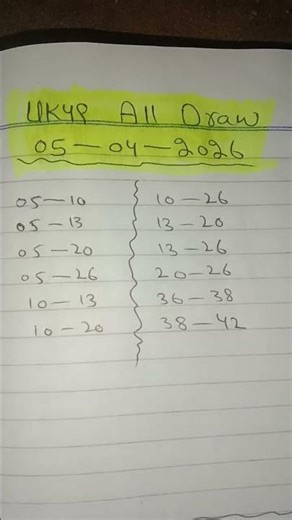 UK49 All Draw
05-04-2026
05-10
05-13
05-20
05-26
10-13
10-20
10-26
13-20
13-26
20-26
36-38
38-42